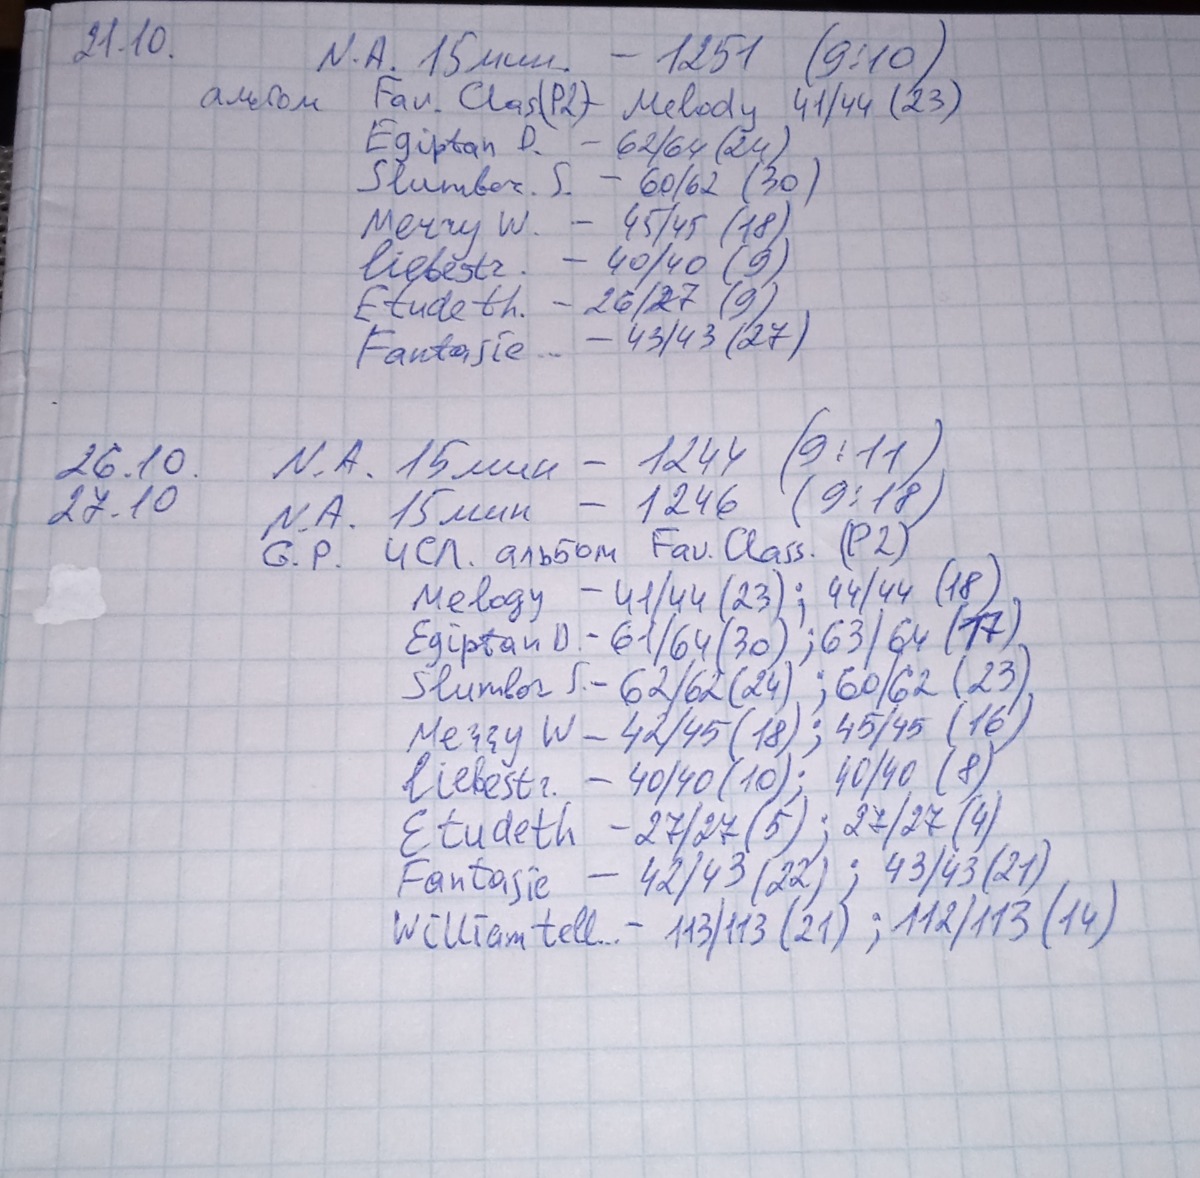 21.10. N.A. 15мин. - 1251 (9:10)
альбом Fav. Clas(P2)- Melody 41/44 (23)
Egiptan D. - 62/64 (24)
Slumber. S. - 60/62 (30)
Merry W. - 45/45 (18)
liebestr. - 40/40 (9)
Etudeth. - 26/27 (9)
Fantasie... - 43/43 (27)
26.10. N.A. 15мин - 1244 (9:11)
27.10 N.A. 15мин - 1246 (9:18)
G.P. исп. альбом Fav. Class. (P2)
Melody - 41/44 (23); 44/44 (18)
Egiptan D. - 61/64 (30); 63/64 (17)
Slumber S. - 62/62 (24); 60/62 (23)
Merry W - 42/45 (18); 45/45 (16)
liebestr. - 40/40 (10); 40/40 (8)
Etudeth - 27/27 (5); 27/27 (4)
Fantasie - 42/43 (22); 43/43 (21)
William tell... - 113/113 (21); 112/113 (14)